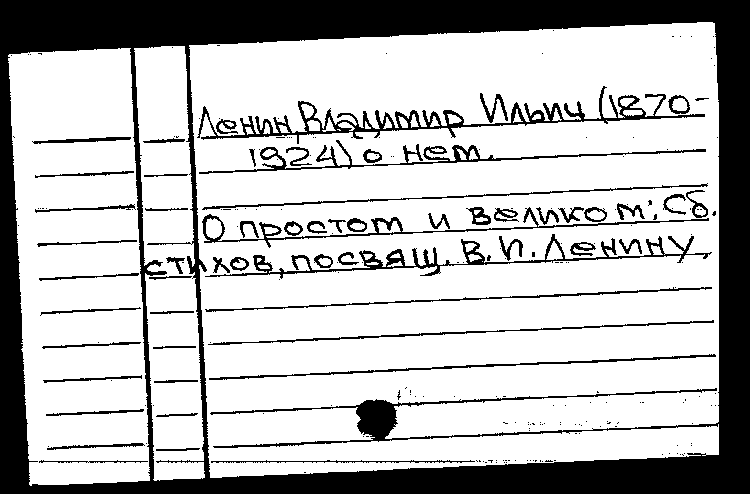 Ленин, Владимир Ильич (1870-
1924) о нем.
О простом и великом: Сб.
стихов, посвящ. В.И. Ленину,